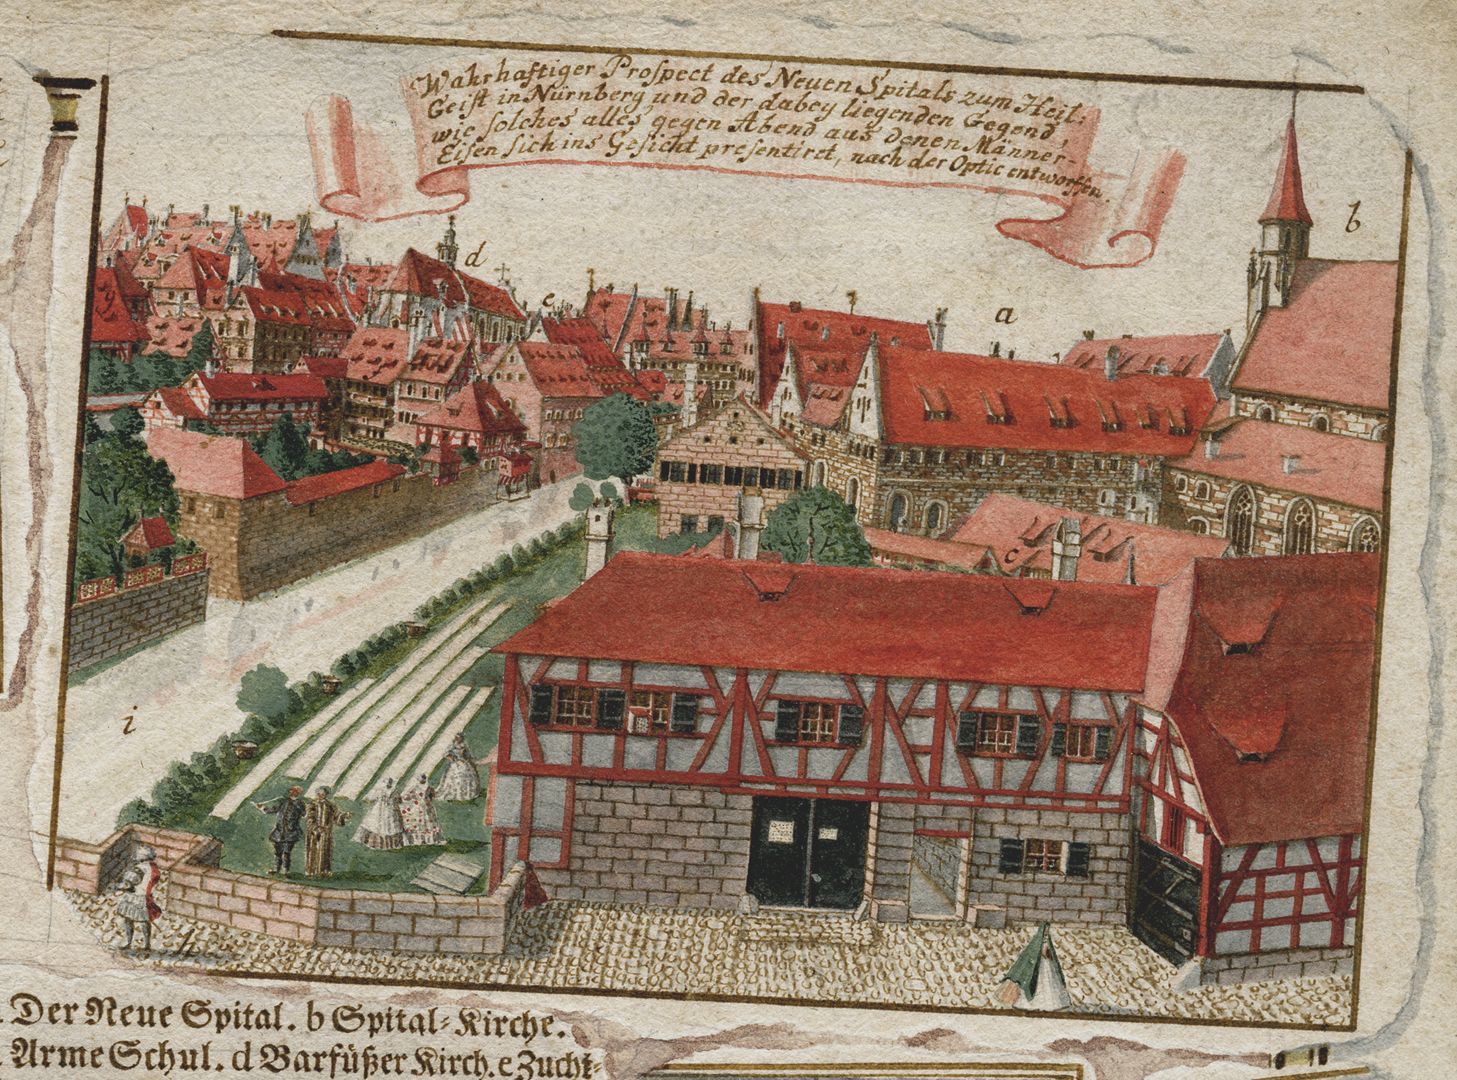 Wahrhaftiger Prospect des Neuen Spitals zum Heil:
Geist in Nürnberg und der dabey liegenden Gegend,
wie solches alles gegen Abend aus denen Männer-
Eisen sich ins Gesicht presentiret, nach der Optic entworffen.
b
d
e
a
g
c
i
h
Der Neue Spital. b Spital-Kirche.
Arme Schul. d Barfüßer Kirch. e Zucht-